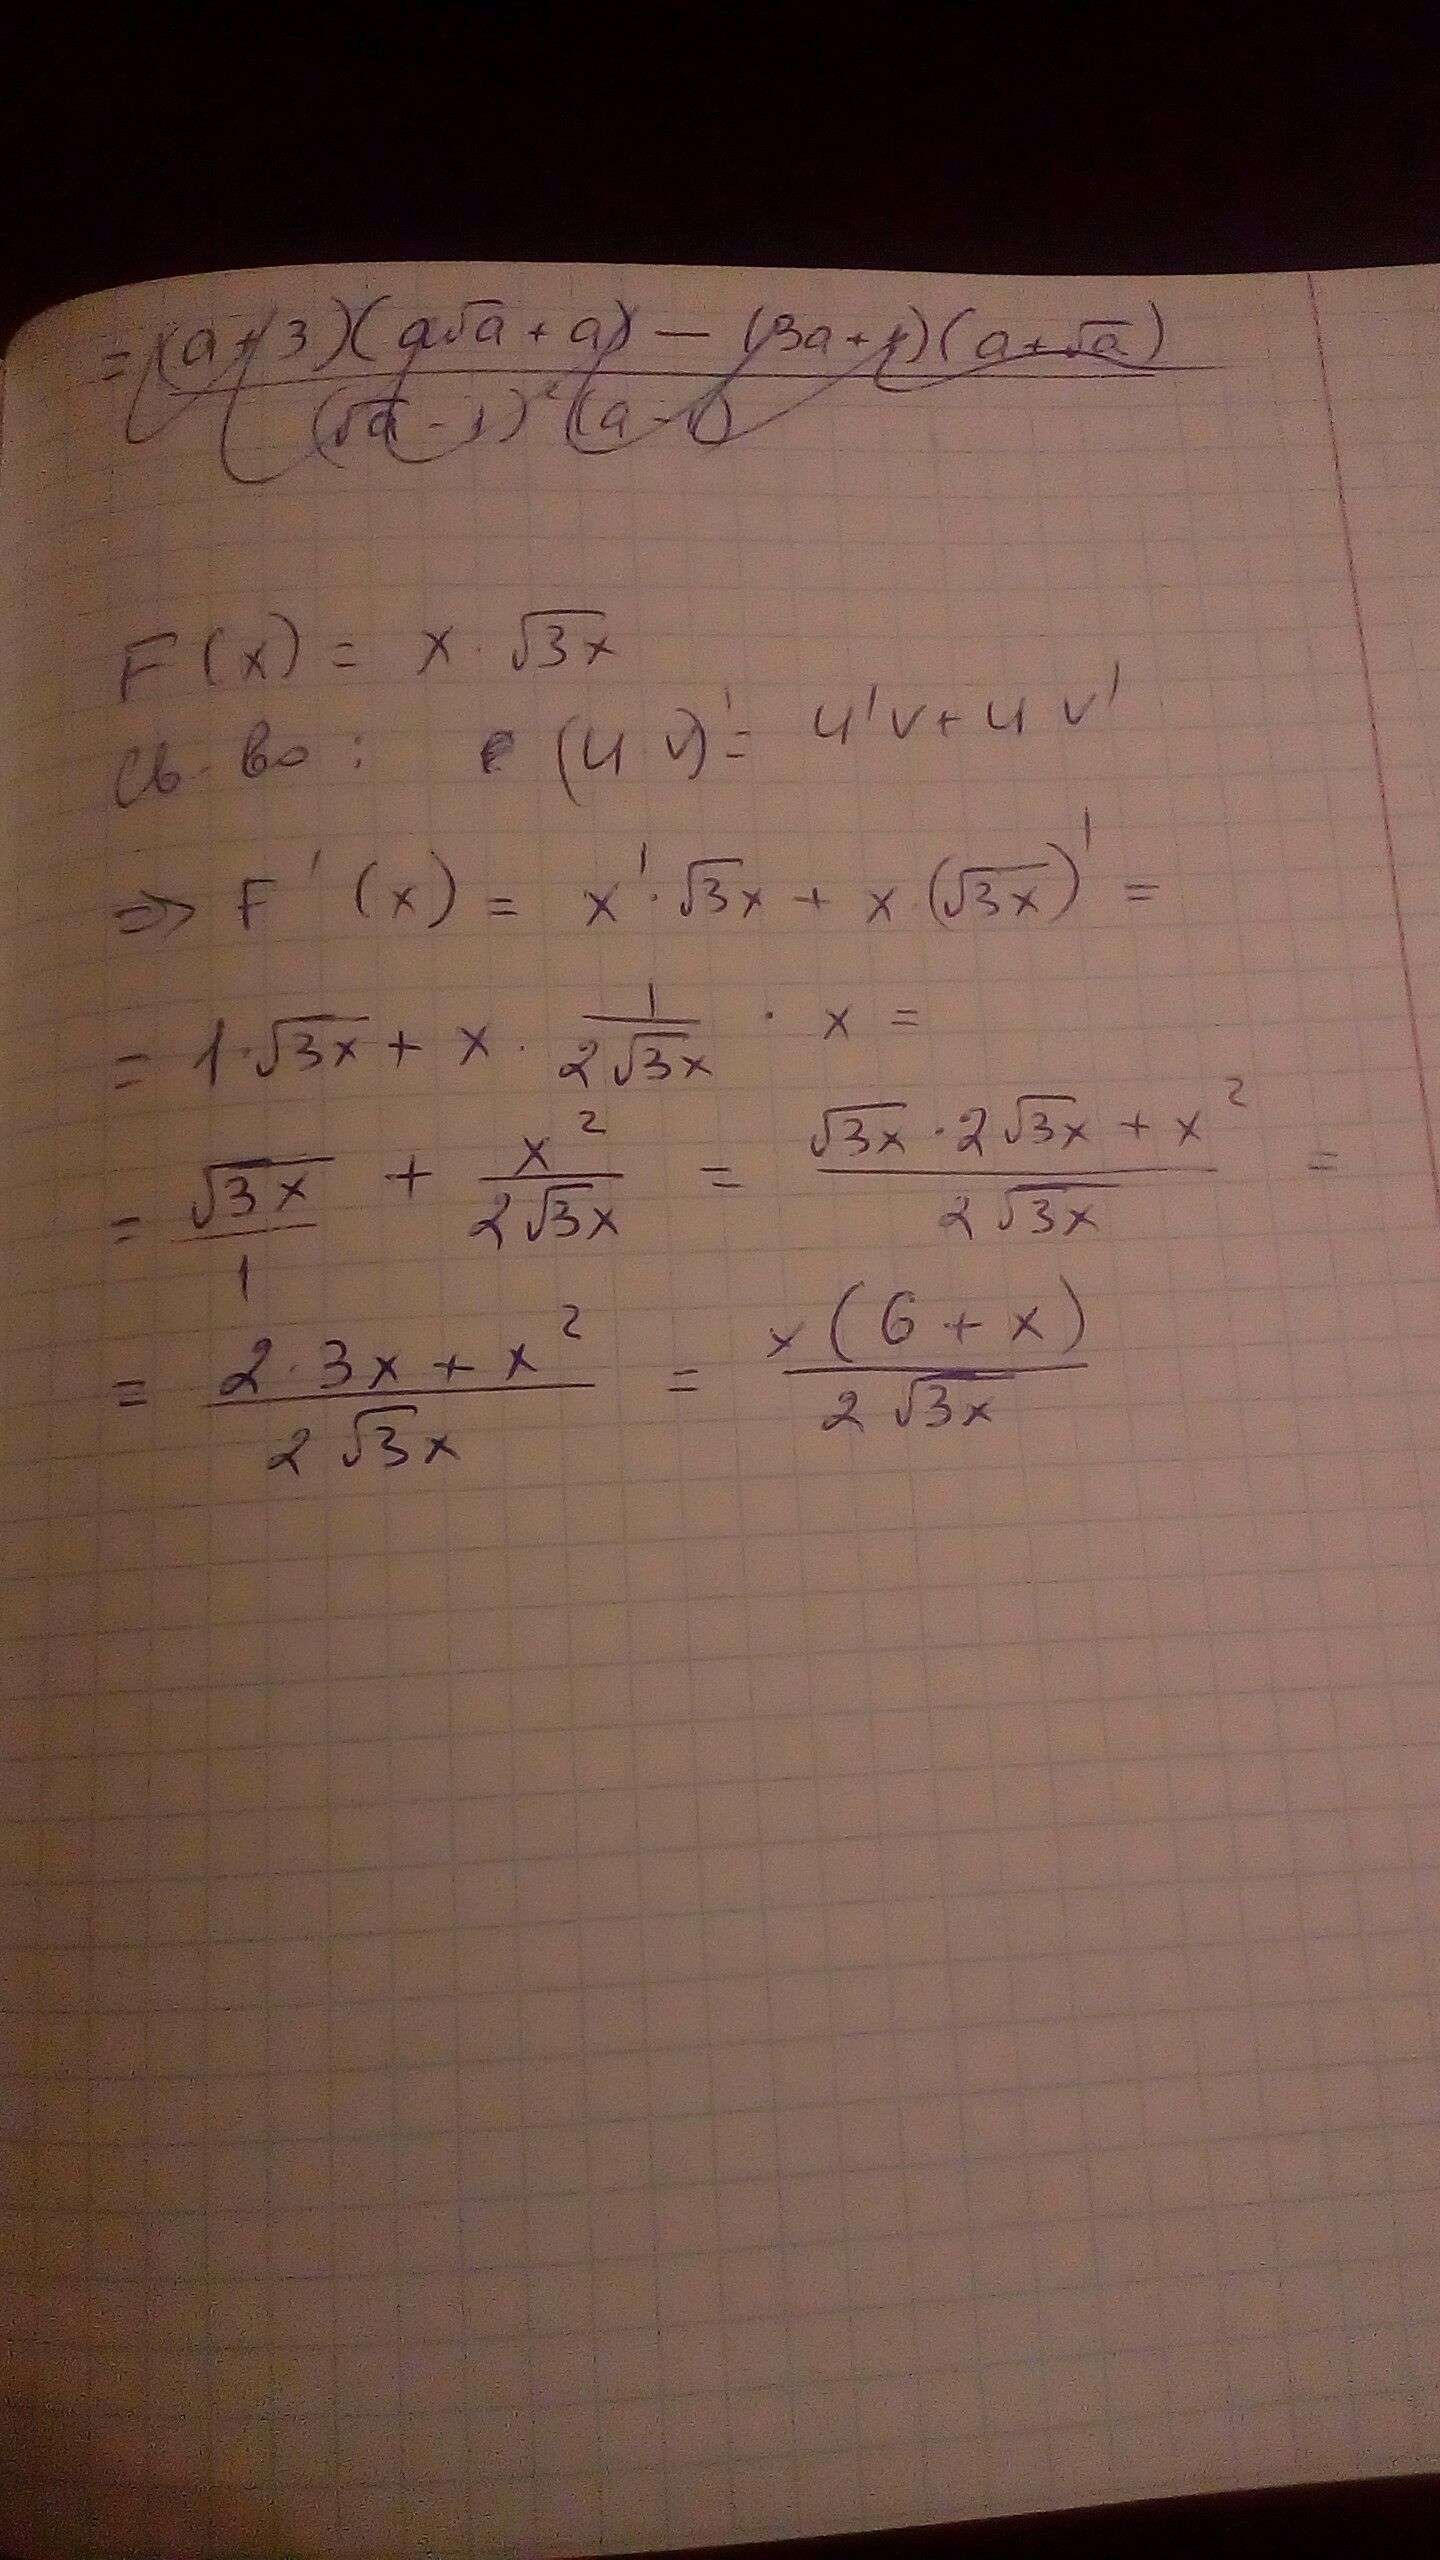 = (a+3)(a√a + a) − (3a+1)(a+√a)
(√a − 1)² (a − 1)
F(x) = x · √3x
Св-во: (u v)' = u'v + u v'
⇒ F'(x) = x' · √3x + x · (√3x)' =
= 1 · √3x + x · 1/(2√3x) · x =
= √3x/1 + x²/(2√3x) = (√3x · 2√3x + x²)/(2√3x) =
= (2·3x + x²)/(2√3x) = x(6 + x)/(2√3x)